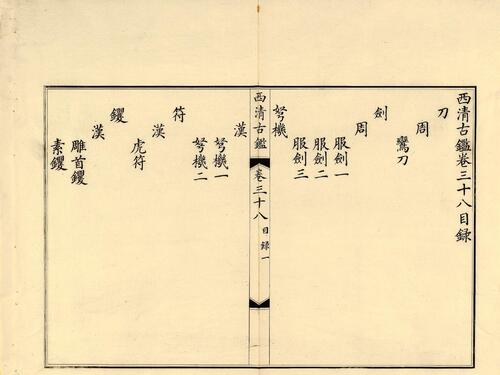 西清古鑑卷三十八目録
刀
周
鸞刀
劍
周
服劍一
服劍二
服劍三
弩機
西清古鑑 卷三十八 目録 一
漢
弩機一
弩機二
符
漢
虎符
鐓
漢
雕首鐓
素鐓